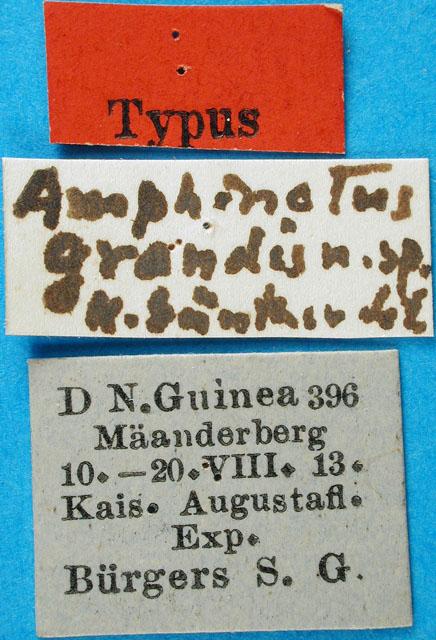 Typus
Amphinotus
grandis n. sp.
K. Günther det
D N.Guinea 396
Mäanderberg
10.—20.VIII. 13.
Kais. Augustafl.
Exp.
Bürgers S. G.